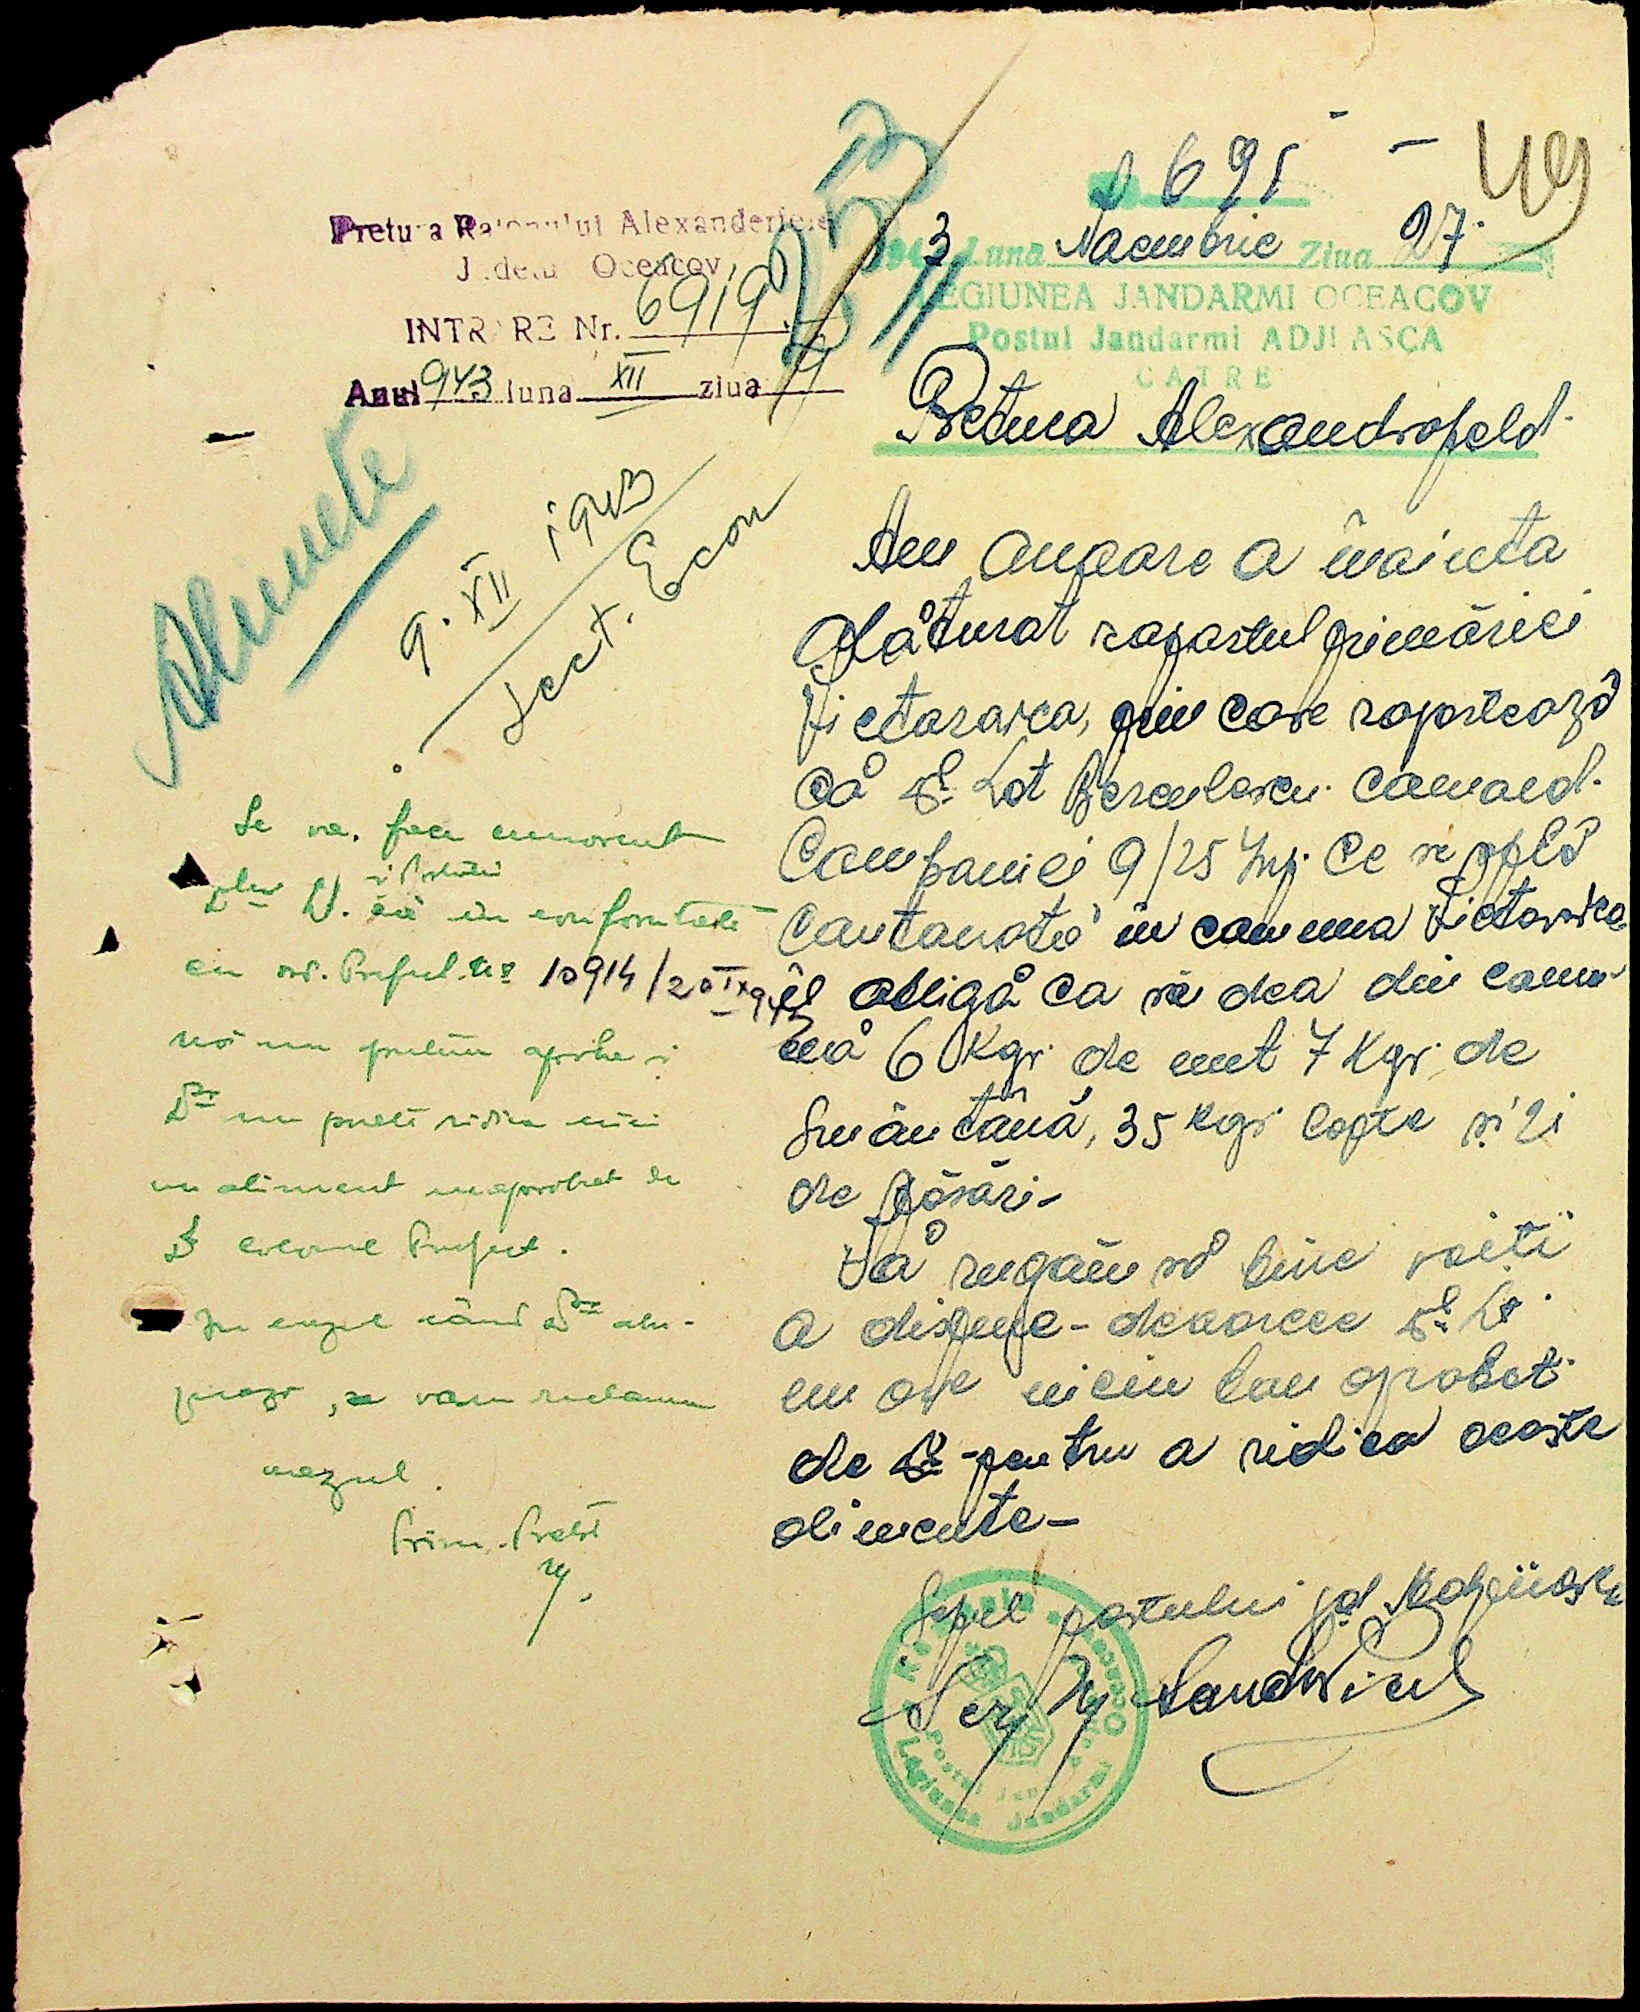 695
49
1943 Luna Noembrie Ziua 27
LEGIUNEA JANDARMI OCEACOV
Postul Jandarmi ADJIASCA
CATRE
Pretura Alexandrofeld
Pretura Raionului Alexanderfeld
Județul Oceacov
INTRARE Nr. 6919
Anul 943 luna XII ziua 9
Alimente
9. XII 1943
Sect. Econ
Am onoare a înainta
alăturat raportul primăriei
Victorovca, prin care raportează
că Dl. Lot comand.
Companiei 9/25 Inf. ce se află
Cantonată în comuna Victorovca
îl obligă ca să dea din comu-
nă 6 Kgr. de unt 7 Kgr. de
Smântână, 35 Kgr lapte și 21
de păsări.
Vă rugăm să bine voiți
a dispune - deoarece Dl. Lt.
nu are niciun bon aprobat
de Dv. pentru a ridica aceste
alimente -
Se va face cunoscut
Dlui Lt. și Postului că în conformitate
cu ord. Prefect. No 10914/20 IX 943
noi nu putem aproba și
Dsa nu poate ridica nici
un aliment neaprobat de
Dl Colonel Prefect.
In cazul când Dsa abu-
zează, se vom reclama
cazul.
Prim-Pretor
Șeful postului jd. Adjiasca
România
Legiunea Jandarmi Oceacov
Postul Jand.